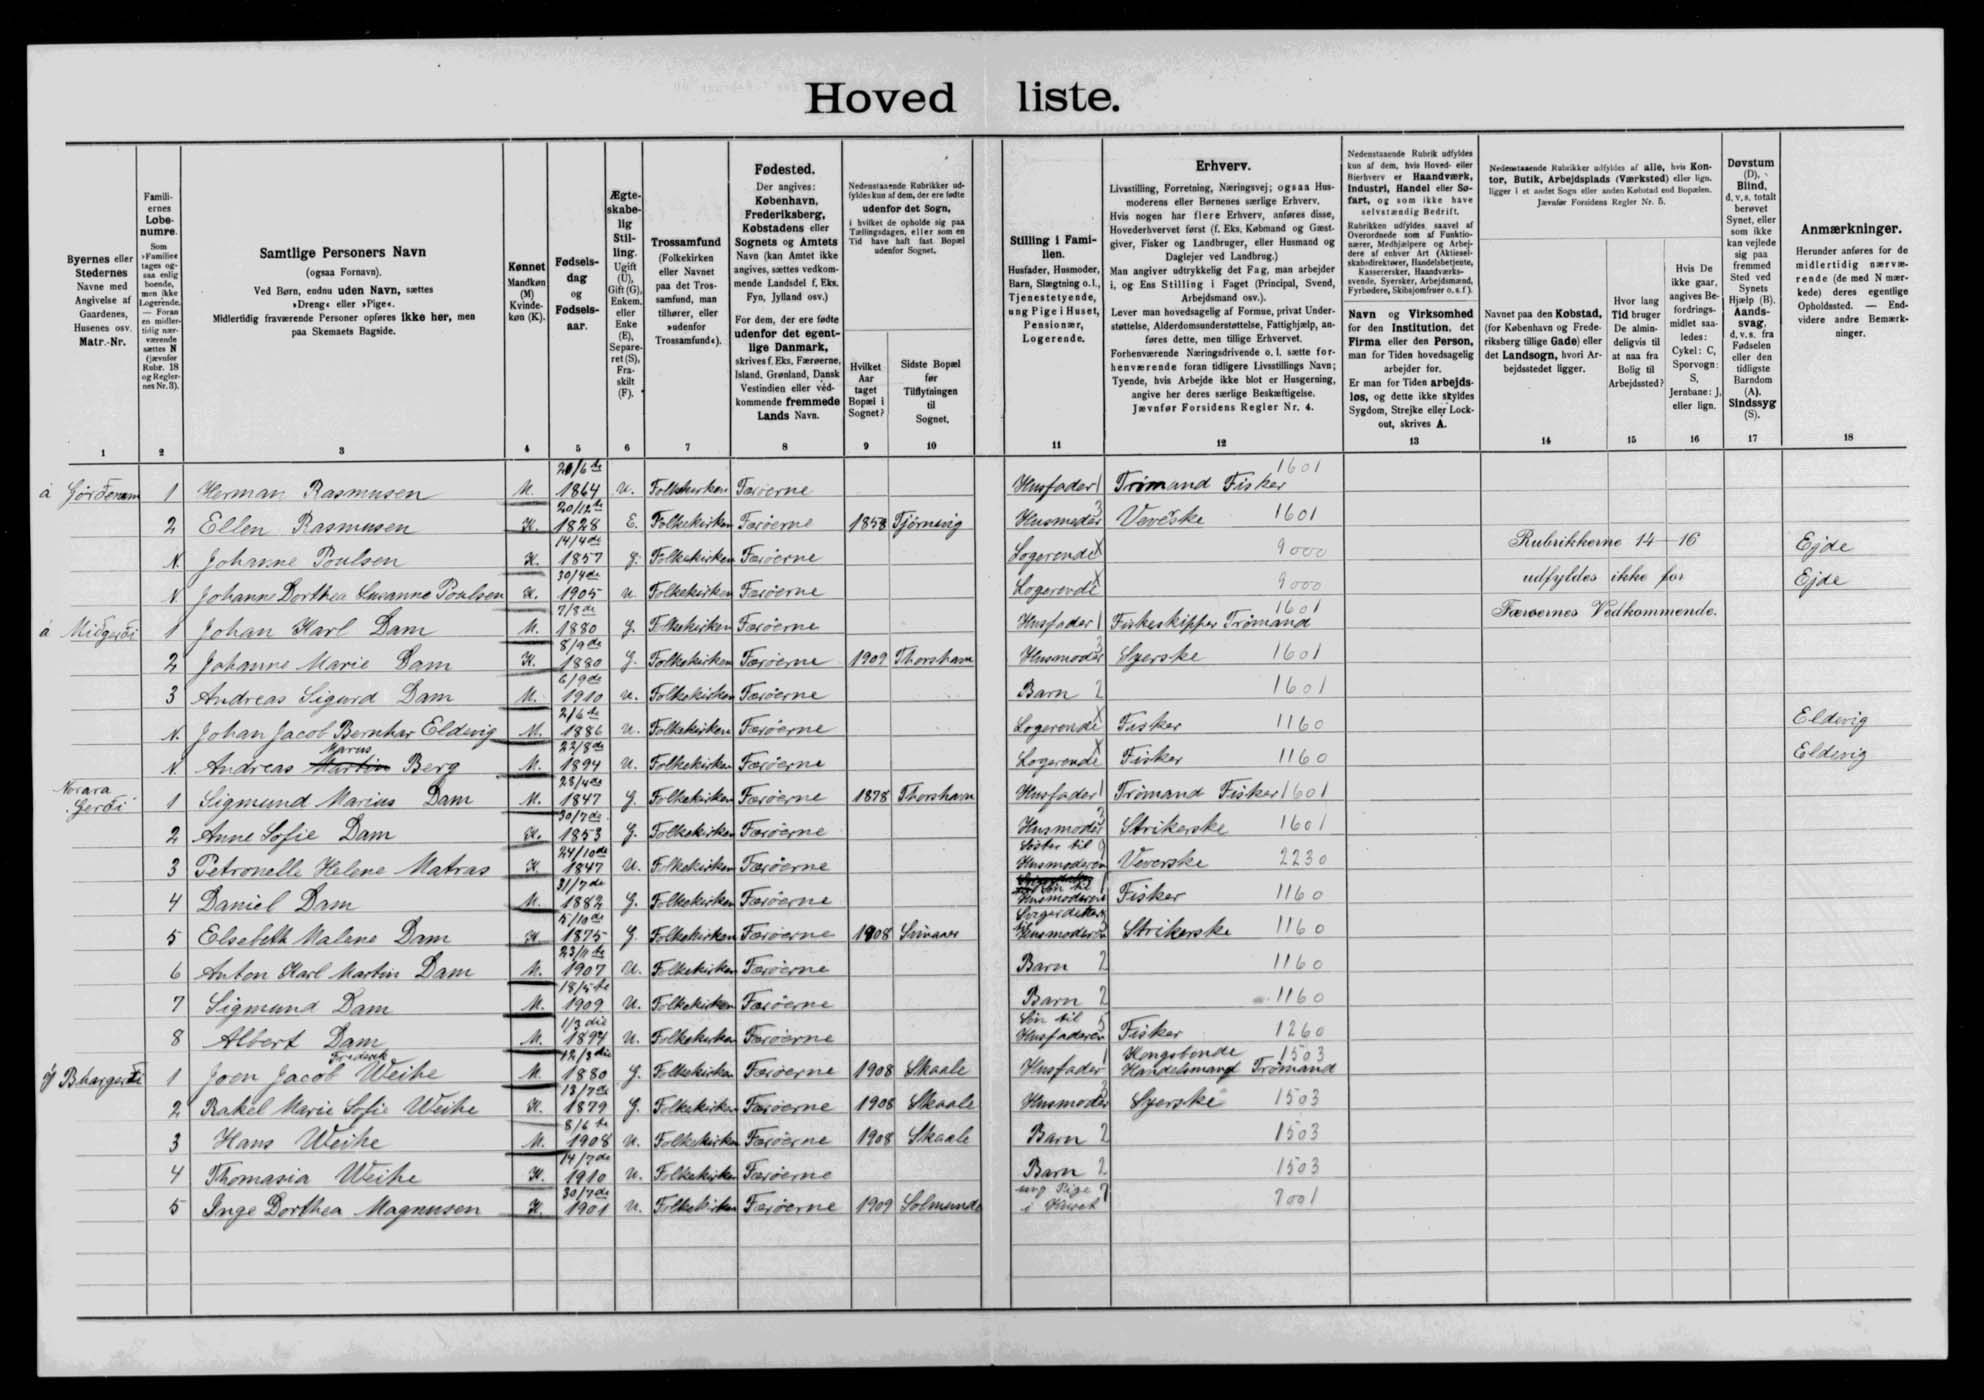 Hoved liste.
Byernes eller Stedernes Navne med Angivelse af Gaardenes, Husenes osv. Matr.-Nr.
Familiernes Løbenumre. Som »Familie« tages ogsaa enlig boende, men ikke Logerende. — Foran en midlertidig nærværende sættes N (jævnfør Rubr. 18 og Regler-nes Nr. 3).
Samtlige Personers Navn (ogsaa Fornavn). Ved Børn, endnu uden Navn, sættes »Dreng« eller »Pige«. Midlertidig fraværende Personer opføres ikke her, men paa Skemaets Bagside.
Kønnet Mandkøn (M) Kvindekøn (K).
Fødselsdag og Fødselsaar.
Ægteskabelig Stilling. Ugift (U), Gift (G), Enkem. eller Enke (E), Separeret (S), Fraskilt (F).
Trossamfund (Folkekirken eller Navnet paa det Trossamfund, man tilhører, eller »udenfor Trossamfund«).
Fødested. Der angives: København, Frederiksberg, Købstadens eller Sognets og Amtets Navn (kan Amtet ikke angives, sættes vedkommende Landsdel f. Eks. Fyn, Jylland osv.) For dem, der ere fødte udenfor det egentlige Danmark, skrives f. Eks. Færøerne, Island, Grønland, Dansk Vestindien eller vedkommende fremmede Lands Navn.
Nedenstaaende Rubrikker udfyldes kun af dem, der ere fødte udenfor det Sogn, i hvilket de opholde sig paa Tællingsdagen, eller som en Tid have haft fast Bopæl udenfor Sognet.
Hvilket Aar taget Bopæl i Sognet?
Sidste Bopæl før Tilflytningen til Sognet.
Stilling i Familien. Husfader, Husmoder, Barn, Slægtning o.l., Tjenestetyende, ung Pige i Huset, Pensionær, Logerende.
Erhverv. Livsstilling, Forretning, Næringsvej; ogsaa Husmoderens eller Børnenes særlige Erhverv. Hvis nogen har flere Erhverv, anføres disse, Hovederhvervet først (f. Eks. Købmand og Gæstgiver, Fisker og Landbruger, eller Husmand og Daglejer ved Landbrug.) Man angiver udtrykkelig det Fag, man arbejder i, og Ens Stilling i Faget (Principal, Svend, Arbejdsmand osv.). Lever man hovedsagelig af Formue, privat Understøttelse, Alderdomsunderstøttelse, Fattighjælp, anføres dette, men tillige Erhvervet. Forhenværende Næringsdrivende o. l. sætte forhenværende foran tidligere Livsstillings Navn; Tyende, hvis Arbejde ikke blot er Husgerning, angive her deres særlige Beskæftigelse. Jævnfør Forsidens Regler Nr. 4.
Nedenstaaende Rubrik udfyldes kun af dem, hvis Hoved- eller Bierhverv er Haandværk, Industri, Handel eller Søfart, og som ikke have selvstændig Bedrift. Rubrikken udfyldes saavel af Overordnede som af Funktionærer, Medhjælpere og Arbejdere af enhver Art (Aktieselskabsdirektører, Handelsbetjente, Kasserersker, Haandværkssvende, Syersker, Arbejdsmænd, Fyrbødere, Skibsjomfruer o. s. f.).
Navn og Virksomhed for den Institution, det Firma eller den Person, man for Tiden hovedsagelig arbejder for. Er man for Tiden arbejdsløs, og dette ikke skyldes Sygdom, Strejke eller Lockout, skrives A.
Nedenstaaende Rubrikker udfyldes af alle, hvis Kontor, Butik, Arbejdsplads (Værksted) eller lign. ligger i et andet Sogn eller anden Købstad end Bopælen. Jævnfør Forsidens Regler Nr. 5.
Navnet paa den Købstad, (for København og Frederiksberg tillige Gade) eller det Landsogn, hvori Arbejdsstedet ligger.
Hvor lang Tid bruger De almindeligvis til at naa fra Bolig til Arbejdssted?
Hvis De ikke gaar, angives Befordringsmidlet saaledes: Cykel: C, Sporvogn: S, Jernbane: J, eller lign.
Døvstum (D). Blind, d. v. s. totalt berøvet Synet, eller som ikke kan vejlede sig paa fremmed Sted ved Synets Hjælp (B). Aandssvag, d. v. s. fra Fødselen eller den tidligste Barndom (A). Sindssyg (S).
Anmærkninger. Herunder anføres for de midlertidig nærværende (de med N mærkede) deres egentlige Opholdssted. — Endvidere andre Bemærkninger.
1 2 3 4 5 6 7 8 9 10 11 12 13 14 15 16 17 18
1 Herman Rasmusen M. 1864 U. Folkekirken Færøerne Husfader 1 Trømand Fisker 1601
2 Ellen Rasmusen K. 20/12 de 1828 E. Folkekirken Færøerne 1858 Tjørnuvig Husmoder 3 Veverske 1601
N. Johanne Poulsen K. 14/4 de 1857 g. Folkekirken Færøerne Logerende X 9000 Rubrikkerne 14–16 Ejde
N. Johanne Dorthea Susanne Poulsen K. 30/4 de 1905 U. Folkekirken Færøerne Logerende X 9000 udfyldes ikke for Ejde
á Miðgerði 1 Johan Karl Dam M. 7/8 de 1880 g. Folkekirken Færøerne Husfader 1 Fiskeskipper Trømand 1601 Færøernes Vedkommende.
2 Johanne Marie Dam K. 8/9 de 1880 g. Folkekirken Færøerne 1909 Thorshavn Husmoder 3 Syerske 1601
3 Andreas Sigurd Dam M. 6/9 de 1910 U. Folkekirken Færøerne Barn 2 1601
N. Johan Jacob Bernhar Eldevig M. 2/6 de 1886 U. Folkekirken Færøerne Logerende X Fisker 1160 Eldevig
N. Andreas Marius Berg M. 22/8 de 1894 U. Folkekirken Færøerne Logerende X Fisker 1160 Eldevig
Norara Gerði 1 Sigmund Marius Dam M. 28/4 de 1847 g. Folkekirken Færøerne 1878 Thorshavn Husfader 1 Trømand Fisker 1601
2 Anne Sofie Dam K. 30/7 de 1853 g. Folkekirken Færøerne Husmoder 3 Strikerske 1601
3 Petronelle Helene Matras K. 24/10 de 1847 U. Folkekirken Færøerne Søster til Husmoderen 9 Veverske 2230
4 Daniel Dam M. 21/7 de 1882 g. Folkekirken Færøerne Søn til Husmoderen Fisker 1160
5 Elsebeth Malene Dam K. 5/10 de 1875 g. Folkekirken Færøerne 1908 Husmoderen Strikerske 1160
6 Anton Karl Martin Dam M. 23/11 de 1907 U. Folkekirken Færøerne Barn 2 1160
7 Sigmund Dam M. 18/5 te 1909 U. Folkekirken Færøerne Barn 2 1160
8 Albert Dam M. 1/3 die 1894 U. Folkekirken Færøerne Søn til Husfaderen 5 Fisker 1260
1 Joen Jacob Frederik Weihe M 12/3 die 1880 g. Folkekirken Færøerne 1908 Skaale Husfader 1 Kongsbonde Handelsmand Trømand 1503
2 Rakel Marie Sofie Weihe K. 13/7 de 1879 g. Folkekirken Færøerne 1908 Skaale Husmoder 3 Syerske 1503
3 Hans Weihe M. 8/6 te 1908 U. Folkekirken Færøerne 1908 Skaale Barn 2 1503
4 Thomasia Weihe K. 14/7 de 1910 U. Folkekirken Færøerne Barn 2 1503
5 Inge Dorthea Magnusen K. 30/7 de 1901 U. Folkekirken Færøerne 1909 Solmunde ung Pige i Huset 7 2001